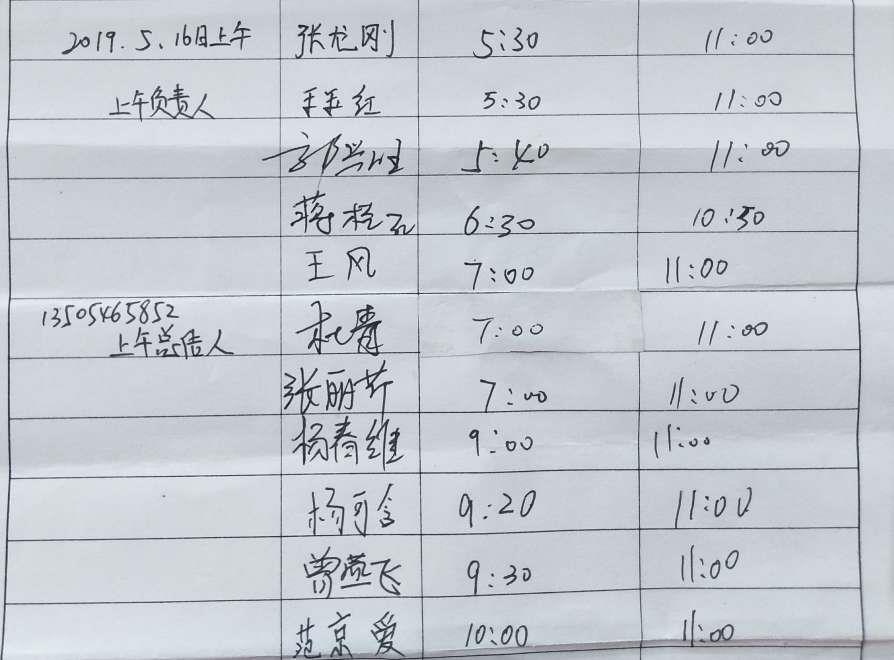 2019.5.16日上午 张龙刚 5:30 11:00
上午负责人 王玉红 5:30 11:00
郭兴旺 5:40 11:00
蒋 6:30 10:50
王风 7:00 11:00
13505465852
上午总负责人 杜青 7:00 11:00
张丽芹 7:00 11:00
杨春维 9:00 11:00
杨可含 9:20 11:00
曾燕飞 9:30 11:00
范京爱 10:00 11:00